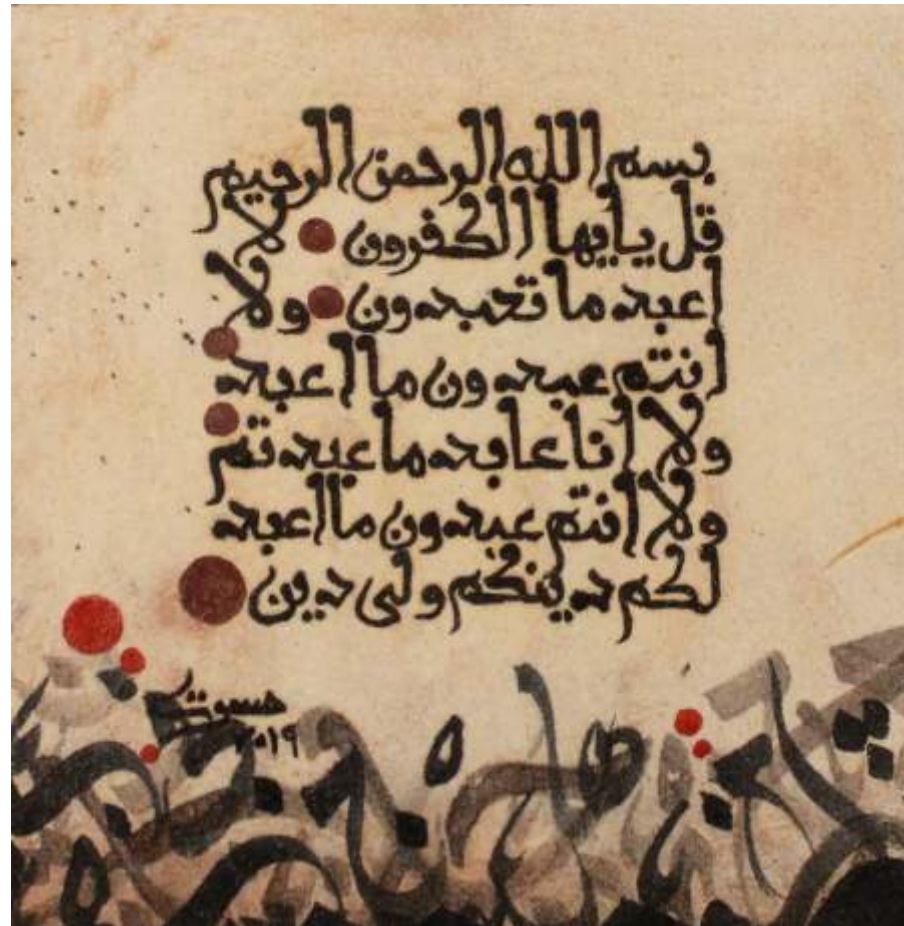 بسم الله الرحمن الرحيم
قل يايها الكفرون لا
اعبد ما تعبدون ولا
انتم عبدون ما اعبد
ولا انا عابد ما عبدتم
ولا انتم عبدون ما اعبد
لكم دينكم ولى دين
٢٠١٩